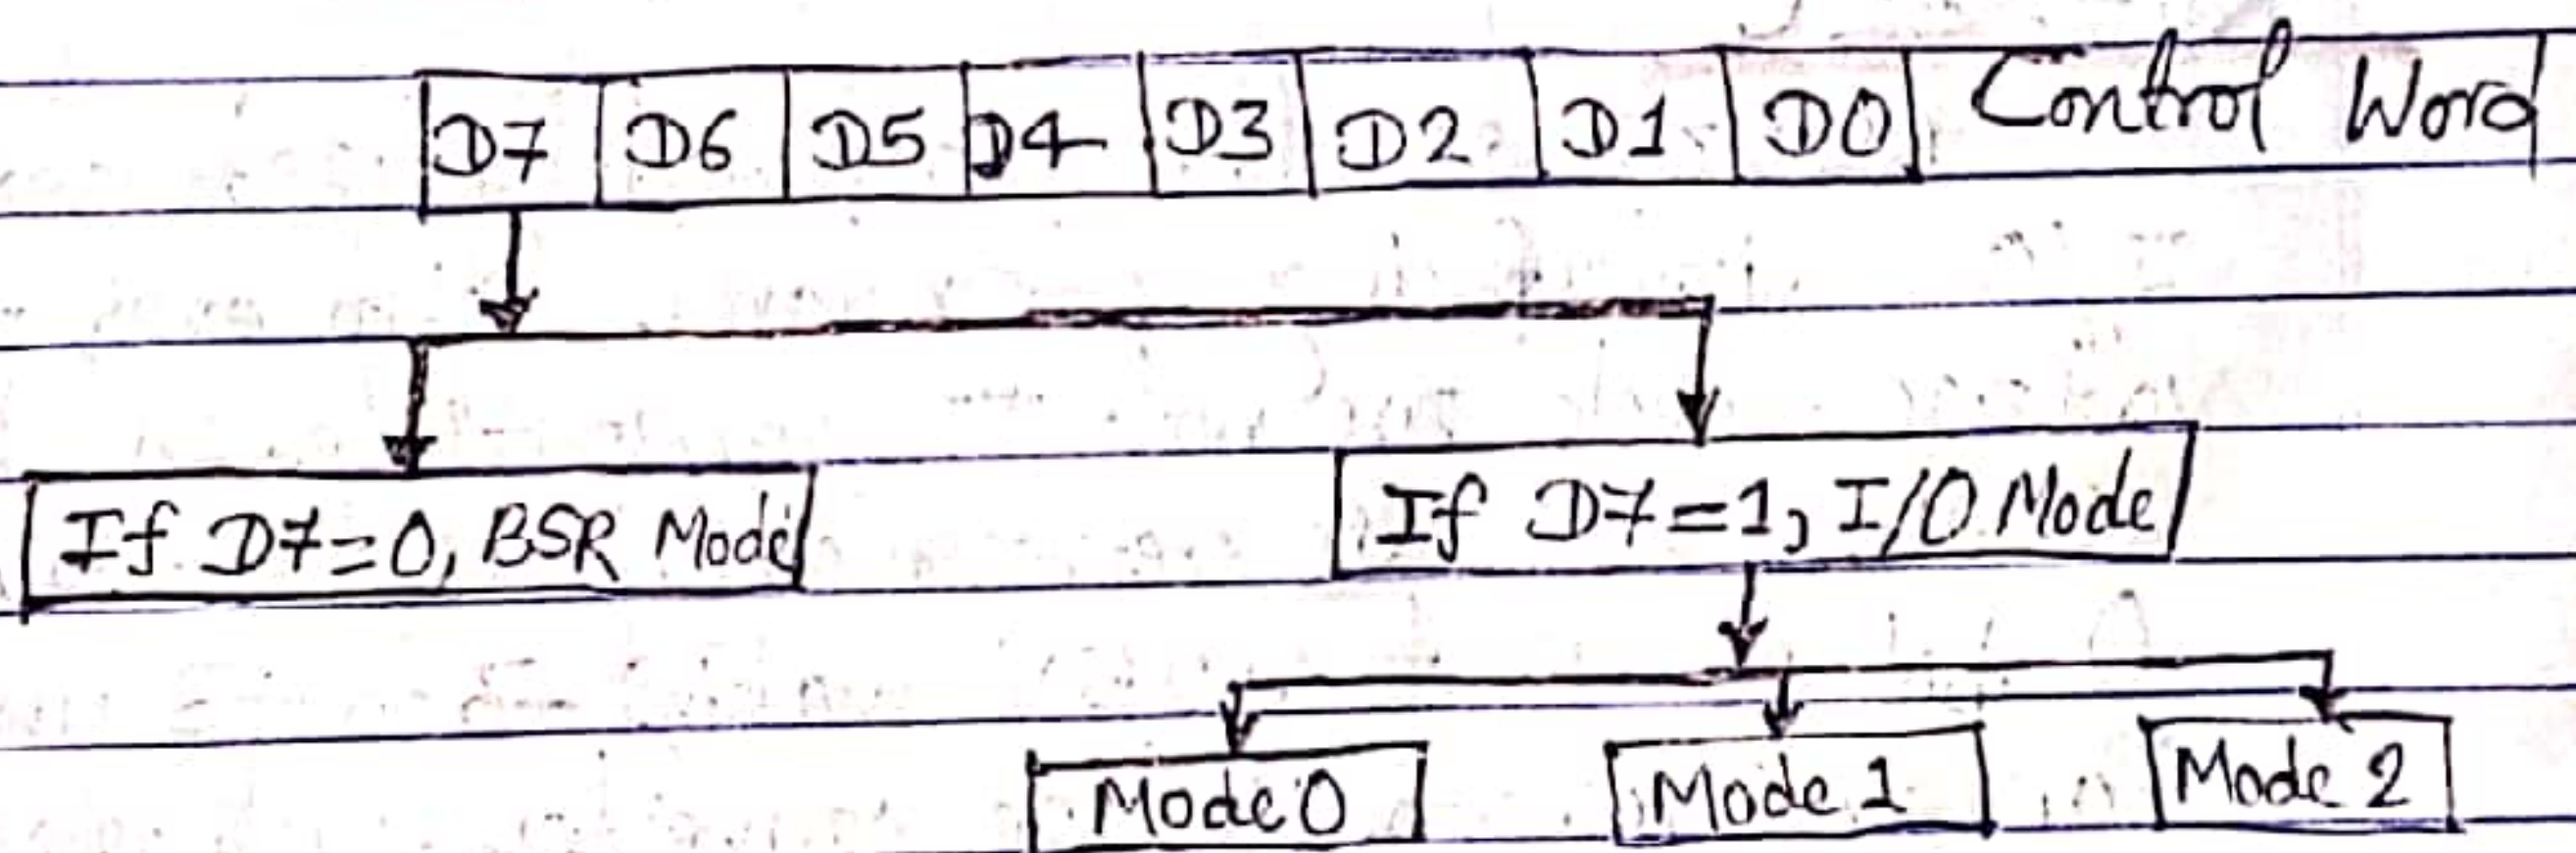 D7 D6 D5 D4 D3 D2 D1 D0 Control Word
If D7=0, BSR Mode
If D7=1, I/O Mode
Mode 0
Mode 1
Mode 2